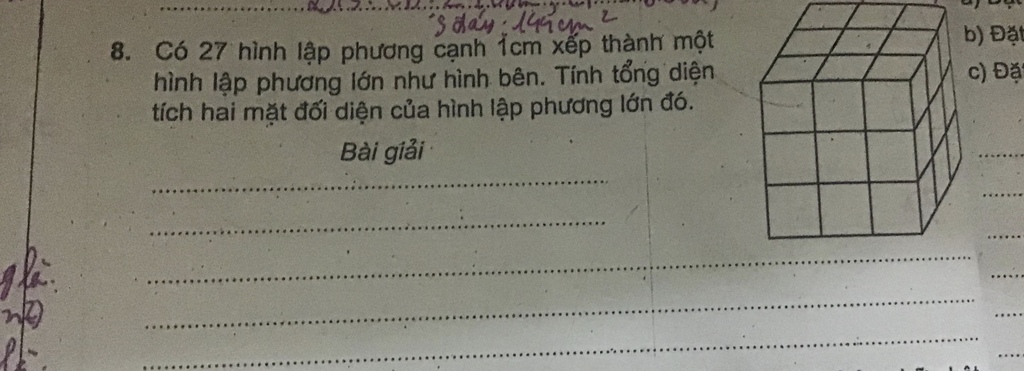 S đáy: 144 cm²
8. Có 27 hình lập phương cạnh 1cm xếp thành một
hình lập phương lớn như hình bên. Tính tổng diện
tích hai mặt đối diện của hình lập phương lớn đó.
Bài giải
b) Đặt
c) Đặ